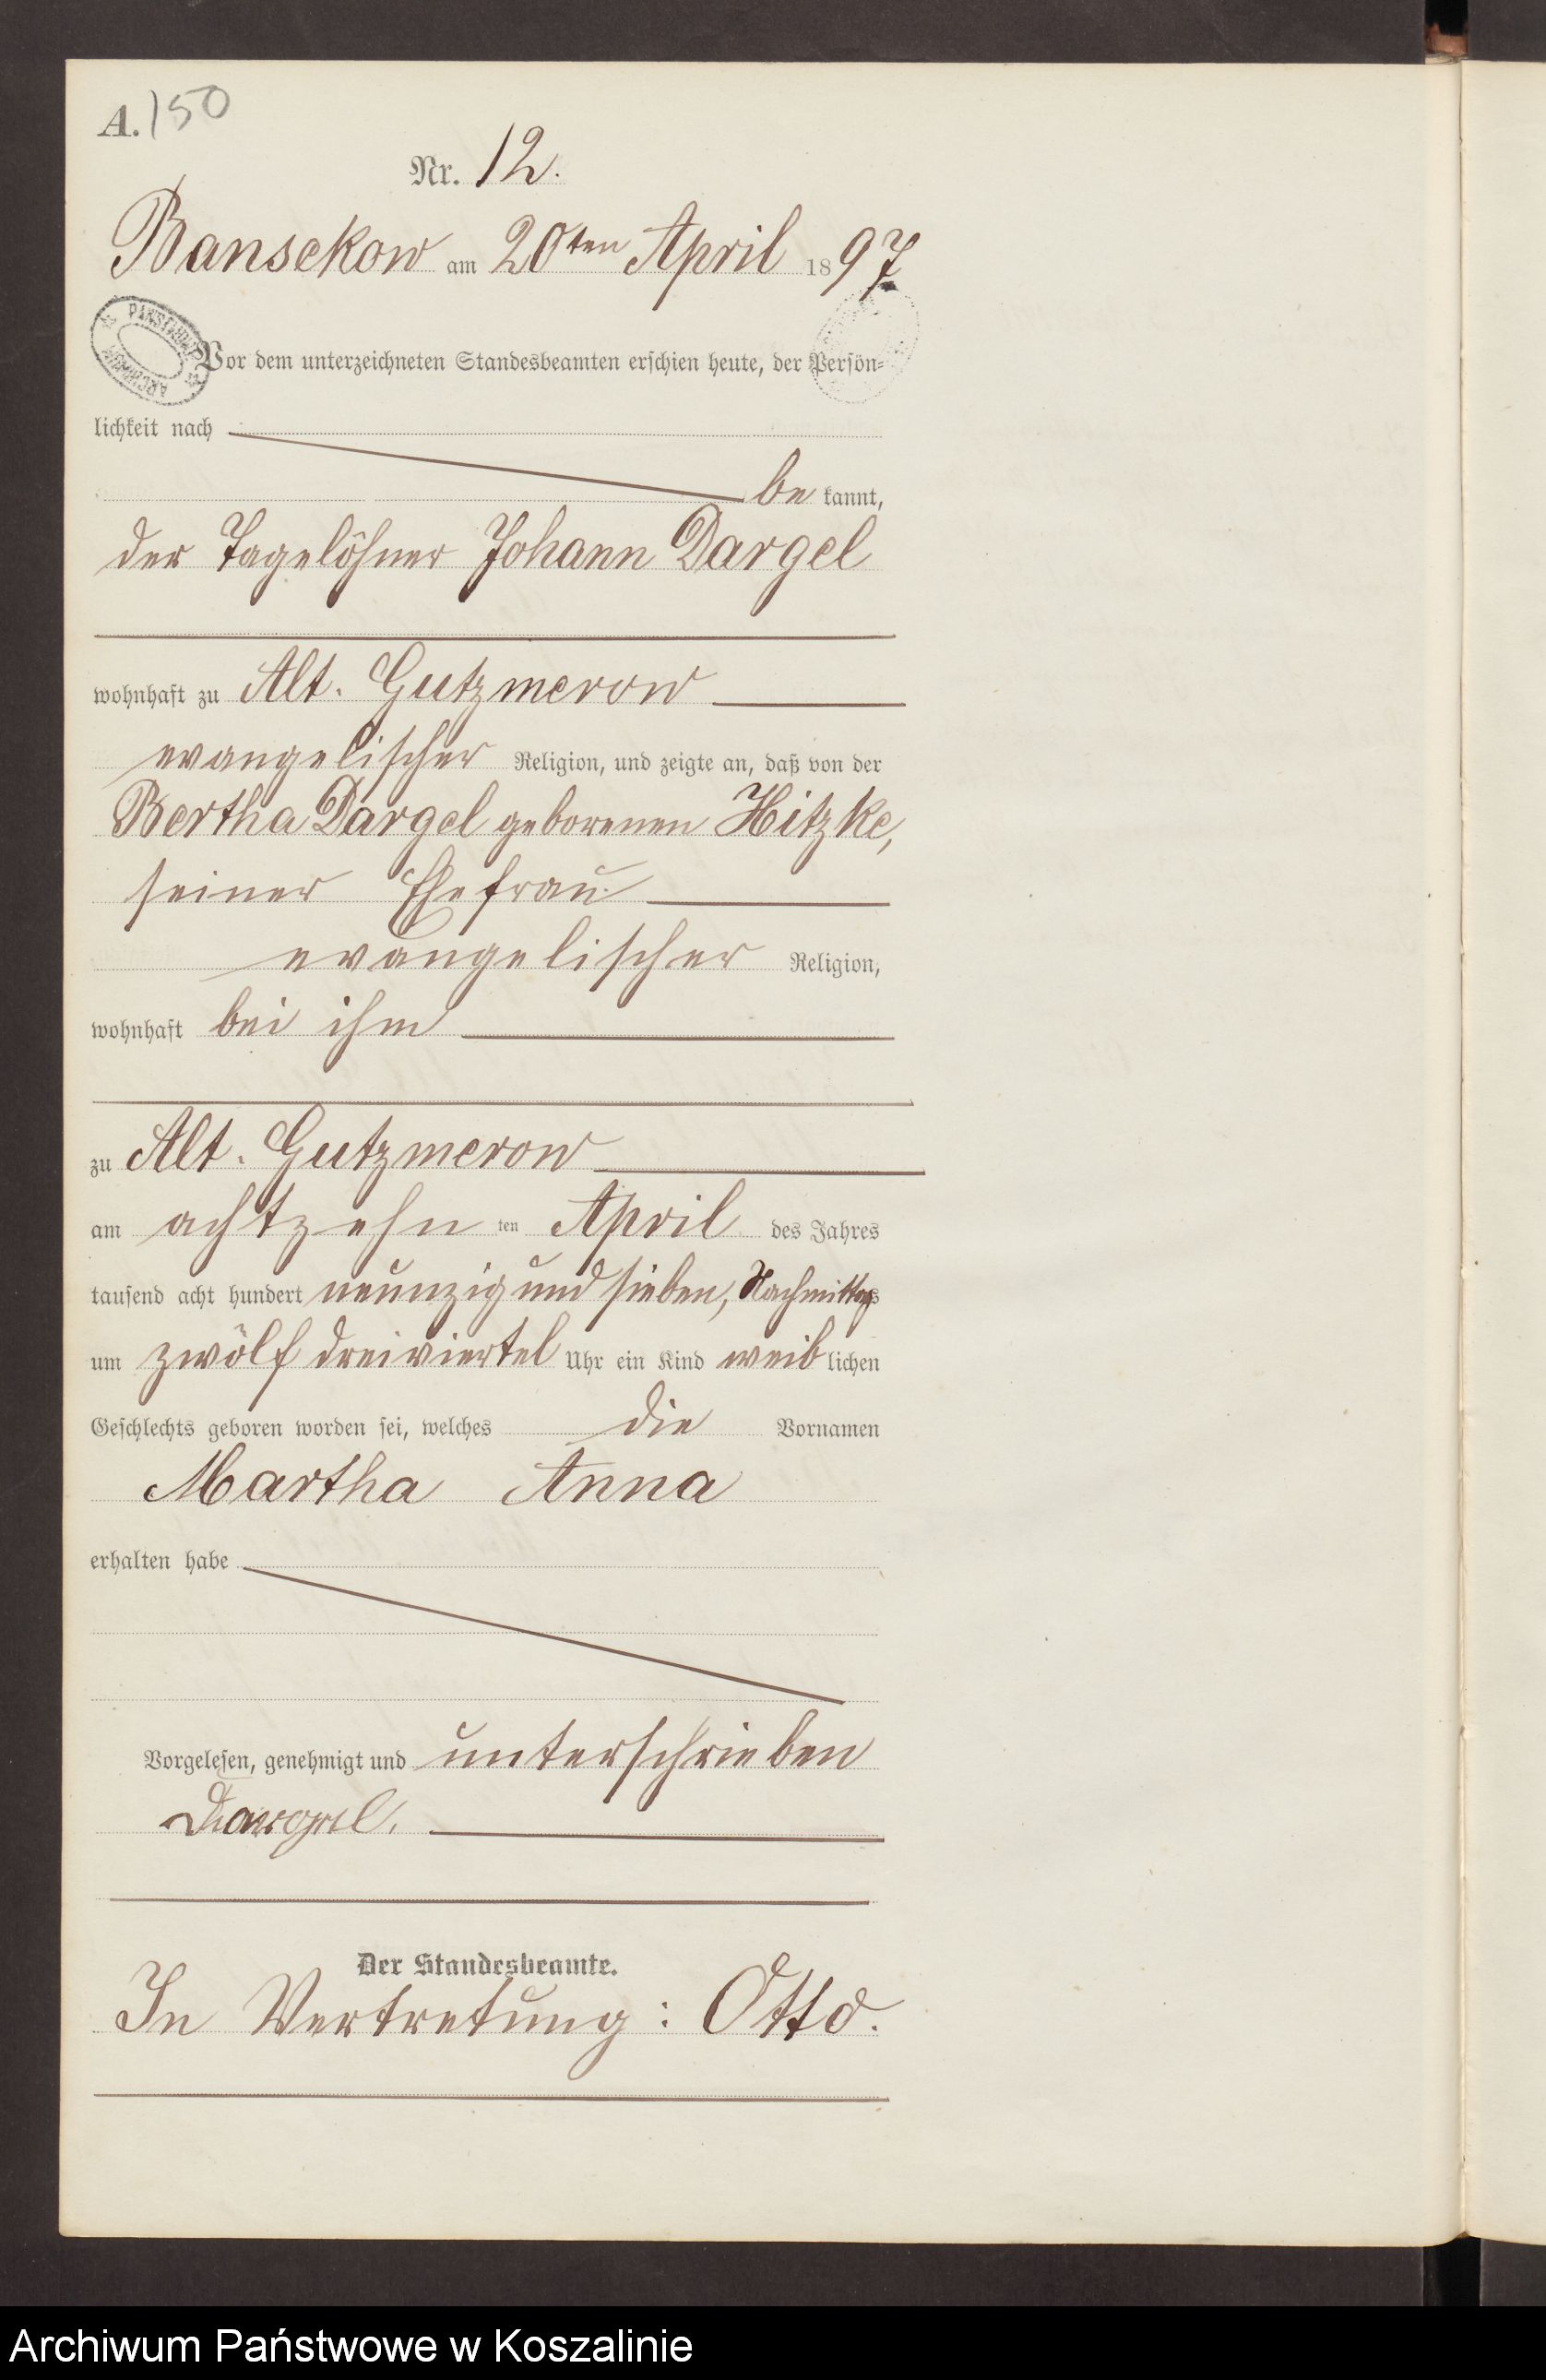 A. 150
Nr. 12.
Bansekow am 20ten April 1897
PAŃSTWOWE ARCHIWUM
Vor dem unterzeichneten Standesbeamten erschien heute, der Persön=
lichkeit nach
be kannt,
der Tagelöhner Johann Dargel
wohnhaft zu Alt. Gutzmerow
evangelischer Religion, und zeigte an, daß von der
Bertha Dargel geborenen Hitzke,
seiner Ehefrau
evangelischer Religion,
wohnhaft bei ihm
zu Alt. Gutzmerow
am achtzehn ten April des Jahres
tausend acht hundert neunzig und sieben, Nachmittags
um zwölf dreiviertel Uhr ein Kind weiblichen
Geschlechts geboren worden sei, welches die Vornamen
Martha Anna
erhalten habe
Vorgelesen, genehmigt und unterschrieben
Dargel.
Der Standesbeamte.
In Vertretung: Otto.
Archiwum Państwowe w Koszalinie